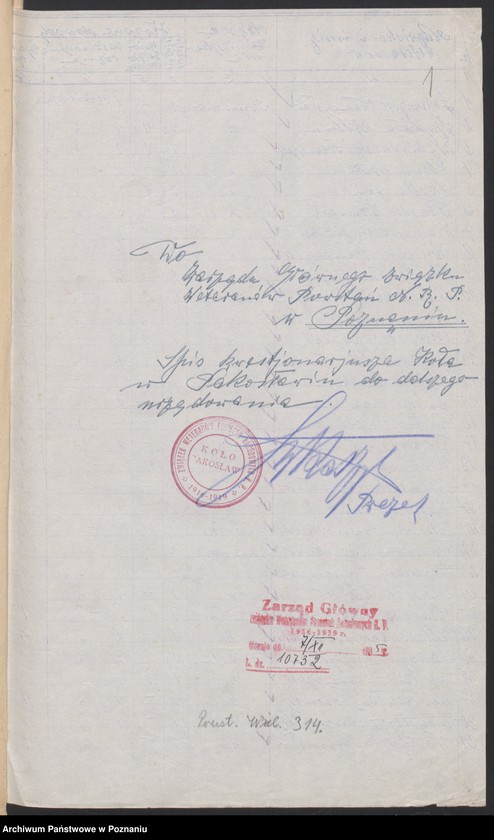 1
Do
Zarządu Głównego Związku
Weteranów Powstań N. R. P.
w Poznaniu.
Spis kwestjonarjusza Koła
w Jarosławiu do dalszego
urzędowania
ZWIĄZEK WETERANÓW POWSTAŃ NARODOWYCH R. P.
1914-1919
KOŁO
JAROSŁAW
Prezes
Zarząd Główny
Związku Weteranów Powstań Narodowych R. P.
1914-1919 r.
7/XI
L. dz. 10732
Powst. Wlkp. 314.
Archiwum Państwowe w Poznaniu